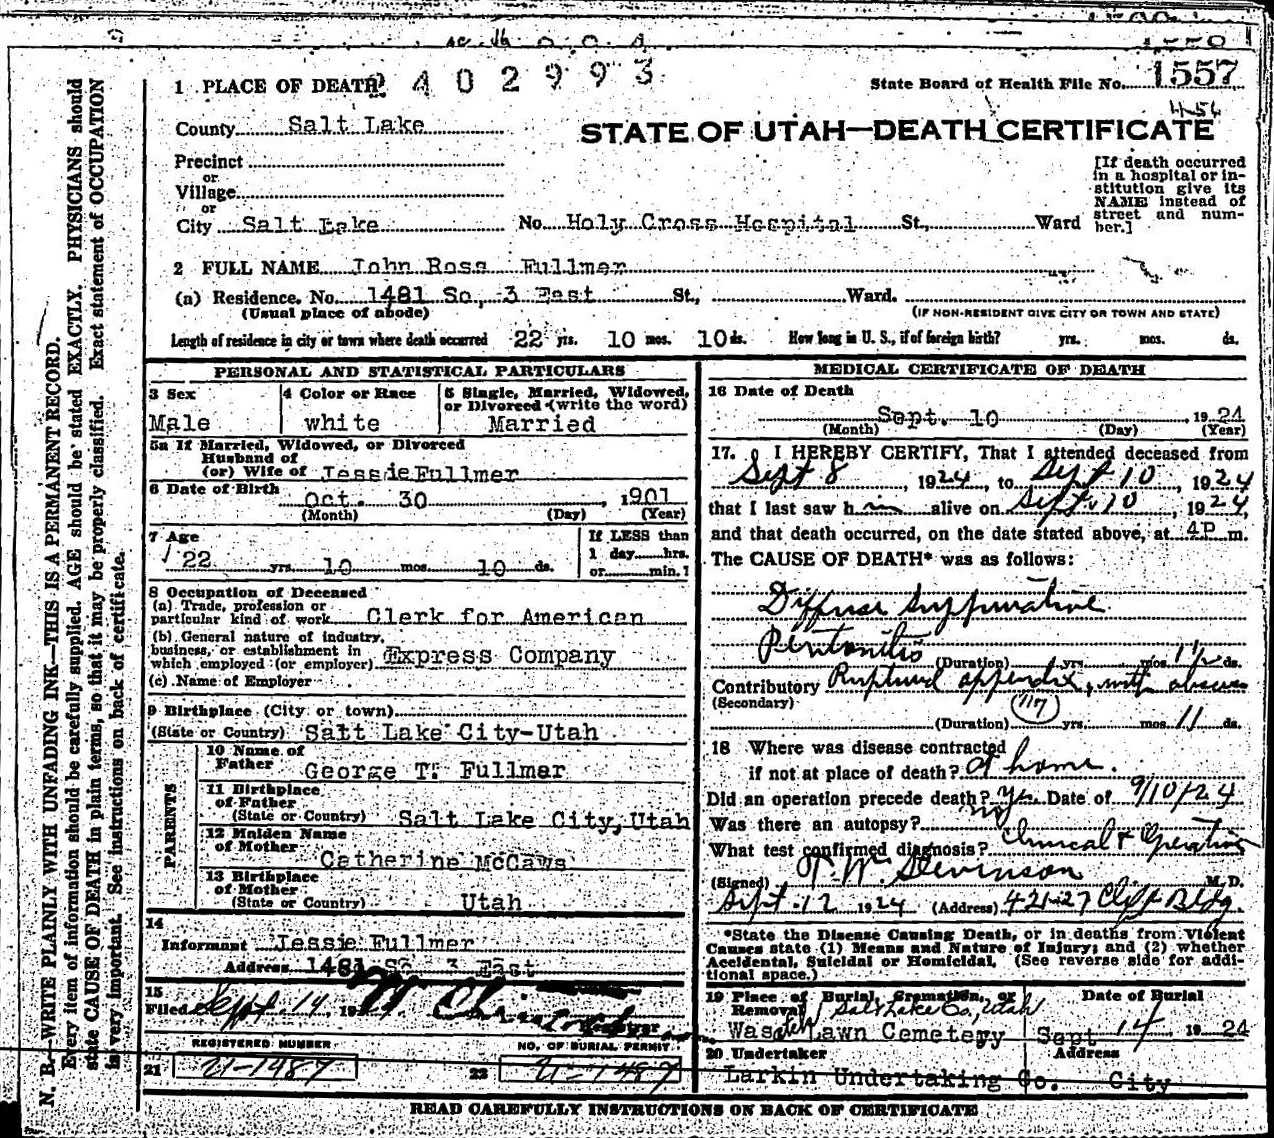 402993
1 PLACE OF DEATH
State Board of Health File No. 1557
County Salt Lake
STATE OF UTAH—DEATH CERTIFICATE
Precinct
or
Village
or
City Salt Lake No. Holy Cross Hospital St., Ward
[If death occurred
in a hospital or in-
stitution give its
NAME instead of
street and num-
ber.]
2 FULL NAME John Ross Fullmer
(a) Residence. No. 1481 So. 3 East St., Ward.
(Usual place of abode) (IF NON-RESIDENT GIVE CITY OR TOWN AND STATE)
Length of residence in city or town where death occurred 22 yrs. 10 mos. 10 ds. How long in U. S., if of foreign birth? yrs. mos. ds.
PERSONAL AND STATISTICAL PARTICULARS
3 Sex 4 Color or Race 5 Single, Married, Widowed,
or Divorced (write the word)
Male white Married
5a If Married, Widowed, or Divorced
Husband of
(or) Wife of Jessie Fullmer
6 Date of Birth
Oct. 30, 1901
(Month) (Day) (Year)
7 Age If LESS than
1 day hrs.
22 yrs. 10 mos. 10 ds. or min.?
8 Occupation of Deceased
(a) Trade, profession or
particular kind of work Clerk for American
(b) General nature of industry,
business, or establishment in
which employed (or employer) Express Company
(c) Name of Employer
9 Birthplace (City or town)
(State or Country) Salt Lake City-Utah
PARENTS
10 Name of
Father George T. Fullmer
11 Birthplace
of Father
(State or Country) Salt Lake City, Utah
12 Maiden Name
of Mother
Catherine McCaws
13 Birthplace
of Mother
(State or Country) Utah
14
Informant Jessie Fullmer
Address 1481 So 3 East
15
Filed Sept. 14, 19
REGISTERED NUMBER NO. OF BURIAL PERMIT
21 21-1487 22 21-1487
MEDICAL CERTIFICATE OF DEATH
16 Date of Death
Sept. 10 1924
(Month) (Day) (Year)
17. I HEREBY CERTIFY, That I attended deceased from
Sept 8, 1924 to Sept 10, 1924
that I last saw him alive on Sept. 10, 1924,
and that death occurred, on the date stated above, at 4P m.
The CAUSE OF DEATH* was as follows:
Diffuse suppurative
Peritonitis
(Duration) yrs. mos. 1½ ds.
Contributory Ruptured appendix, with abscess
(Secondary) (117)
(Duration) yrs. mos. 11 ds.
18 Where was disease contracted
if not at place of death? At home.
Did an operation precede death? Yes. Date of 9/10/24
Was there an autopsy? no
What test confirmed diagnosis? Clinical & Operation
(Signed) T. W. Stevinson M. D.
Sept. 12 1924 (Address) 421-27 Cliff Bldg.
*State the Disease Causing Death, or in deaths from Violent
Causes state (1) Means and Nature of Injury; and (2) whether
Accidental, Suicidal or Homicidal. (See reverse side for addi-
tional space.)
19 Place of Burial, Cremation, or Date of Burial
Removal Salt Lake Co., Utah
Wasatch Lawn Cemetery Sept 14 1924
20 Undertaker Address
Larkin Undertaking Co. City
READ CAREFULLY INSTRUCTIONS ON BACK OF CERTIFICATE
N. B.—WRITE PLAINLY WITH UNFADING INK—THIS IS A PERMANENT RECORD.
Every item of information should be carefully supplied. AGE should be stated EXACTLY. PHYSICIANS should
state CAUSE OF DEATH in plain terms, so that it may be properly classified. Exact statement of OCCUPATION
is very important. See instructions on back of certificate.